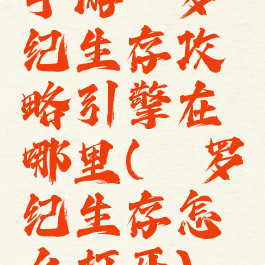 手游 罗
纪生存攻
略引擎在
哪里( 罗
纪生存怎
么打开)